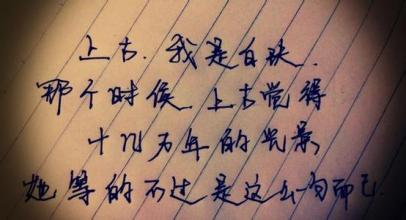 上古.我是白玦.
那个时候.上古觉得
十几万年的光景
她等的不过是这么句而已.